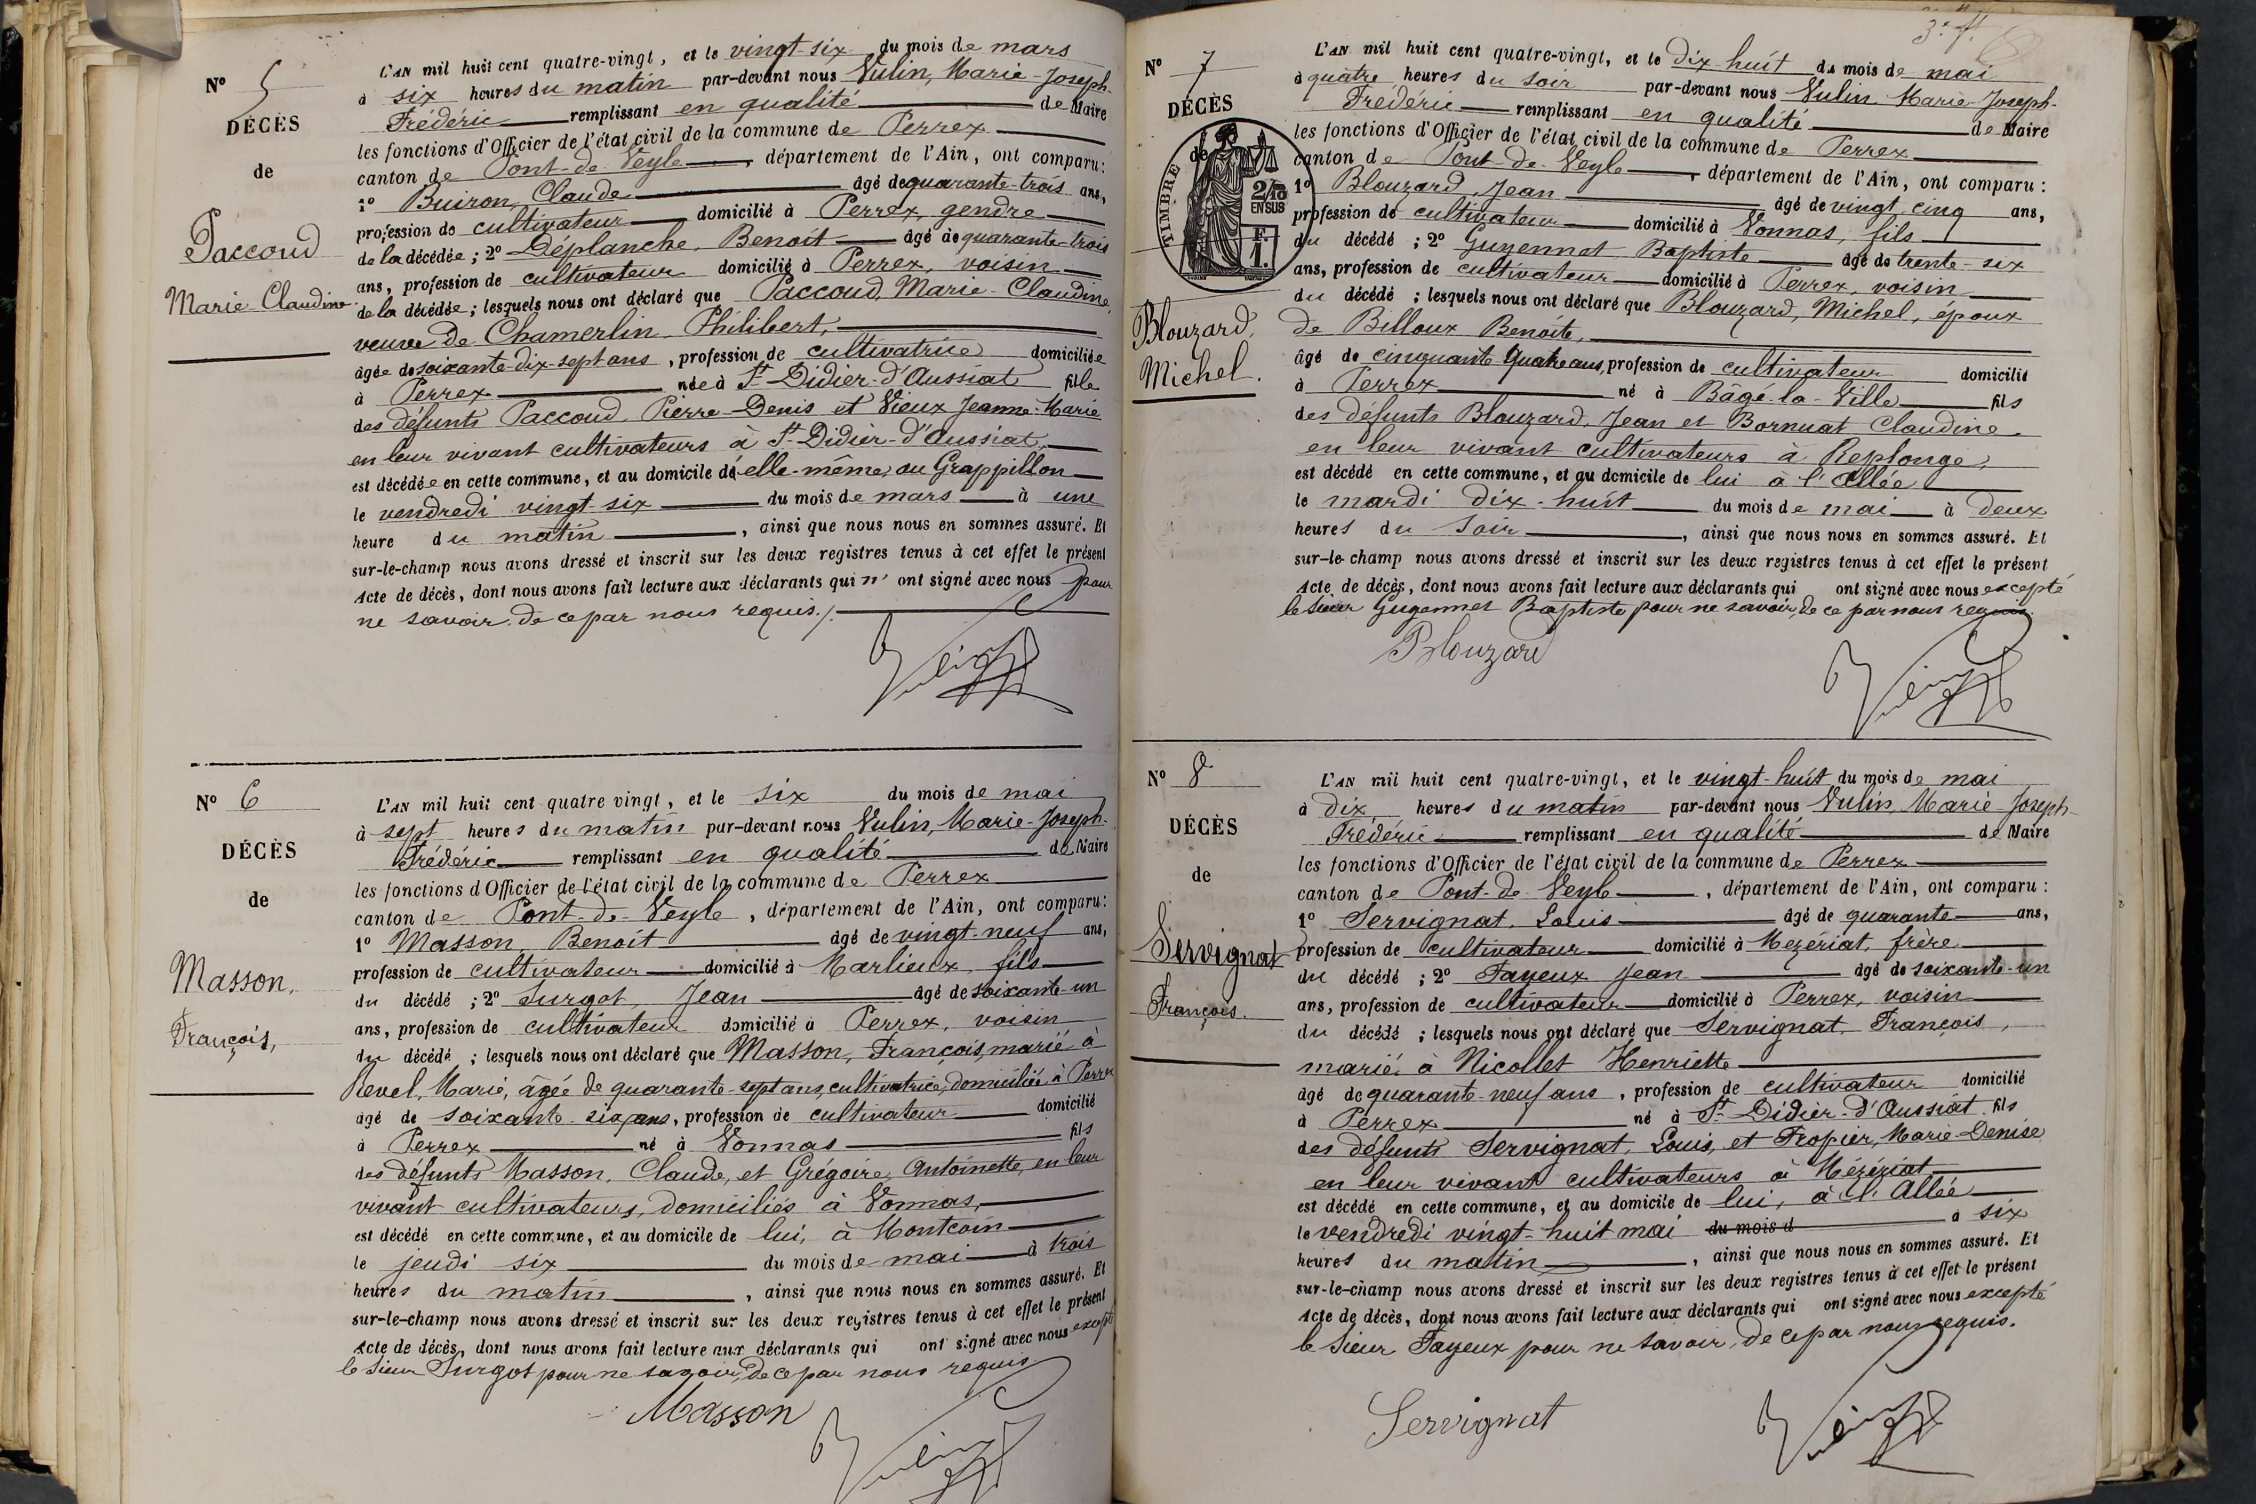 N° 5
DÉCÈS
de
Paccoud
Marie Claudine
L'AN mil huit cent quatre-vingt, et le vingt-six du mois de mars
à six heures du matin par-devant nous Vulin, Marie-Joseph-
Frédéric remplissant en qualité de Maire
les fonctions d'Officier de l'état civil de la commune de Perrex
canton de Pont-de-Veyle, département de l'Ain, ont comparu:
1° Buiron, Claude âgé de quarante-trois ans,
profession de cultivateur domicilié à Perrex, gendre
de la décédée; 2° Déplanche, Benoît âgé de quarante-trois
ans, profession de cultivateur domicilié à Perrex, voisin
de la décédée; lesquels nous ont déclaré que Paccoud, Marie-Claudine,
veuve de Chamerlin Philibert,
âgée de soixante-dix-sept ans, profession de cultivatrice domiciliée
à Perrex née à St-Didier-d'Aussiat fille
des défunts Paccoud Pierre-Denis et Vieux Jeanne-Marie
en leur vivant cultivateurs à St-Didier-d'Aussiat,
est décédée en cette commune, et au domicile d'elle-même au Grappillon
le vendredi vingt-six du mois de mars à une
heure du matin, ainsi que nous nous en sommes assuré. Et
sur-le-champ nous avons dressé et inscrit sur les deux registres tenus à cet effet le présent
Acte de décès, dont nous avons fait lecture aux déclarants qui n'ont signé avec nous pour
ne savoir de ce par nous requis./.
Vulin
N° 6
DÉCÈS
de
Masson,
François,
L'AN mil huit cent quatre vingt, et le six du mois de mai
à sept heures du matin par-devant nous Vulin, Marie-Joseph-
Frédéric remplissant en qualité de Maire
les fonctions d'Officier de l'état civil de la commune de Perrex
canton de Pont-de-Veyle, département de l'Ain, ont comparu:
1° Masson, Benoît âgé de vingt-neuf ans,
profession de cultivateur domicilié à Marlieux fils
du décédé; 2° Surgot, Jean âgé de soixante-un
ans, profession de cultivateur domicilié à Perrex, voisin
du décédé; lesquels nous ont déclaré que Masson, François, marié à
Revel, Marie, âgée de quarante-sept ans, cultivatrice, domiciliée à Perrex
âgé de soixante-six ans, profession de cultivateur domicilié
à Perrex né à Vonnas fils
des défunts Masson, Claude, et Grégoire, Antoinette, en leur
vivant cultivateurs, domiciliés à Vonnas,
est décédé en cette commune, et au domicile de lui, à Montcoin
le jeudi six du mois de mai à trois
heures du matin, ainsi que nous nous en sommes assuré. Et
sur-le-champ nous avons dressé et inscrit sur les deux registres tenus à cet effet le présent
Acte de décès, dont nous avons fait lecture aux déclarants qui ont signé avec nous excepté
le sieur Surgot pour ne savoir, de ce par nous requis
Masson
Vulin
3e f.
N° 7
DÉCÈS
de
TIMBRE
2/10
EN SUS
F.
1.
Blouzard,
Michel.
L'AN mil huit cent quatre-vingt, et le dix huit du mois de mai
à quatre heures du soir par-devant nous Vulin Marie-Joseph-
Frédéric remplissant en qualité de Maire
les fonctions d'Officier de l'état civil de la commune de Perrex
canton de Pont-de-Veyle, département de l'Ain, ont comparu:
1° Blouzard, Jean âgé de vingt cinq ans,
profession de cultivateur domicilié à Vonnas, fils
du décédé; 2° Guyennet Baptiste âgé de trente-six
ans, profession de cultivateur domicilié à Perrex, voisin
du décédé; lesquels nous ont déclaré que Blouzard, Michel, époux
de Billoux Benoîte,
âgé de cinquante quatre ans, profession de cultivateur domicilié
à Perrex né à Bâgé-la-Ville fils
des défunts Blouzard, Jean et Bornuat Claudine
en leur vivant cultivateurs à Replonge,
est décédé en cette commune, et au domicile de lui à l'Allée
le mardi dix-huit du mois de mai à deux
heures du soir, ainsi que nous nous en sommes assuré. Et
sur-le-champ nous avons dressé et inscrit sur les deux registres tenus à cet effet le présent
Acte de décès, dont nous avons fait lecture aux déclarants qui ont signé avec nous excepté
le sieur Guyennet Baptiste pour ne savoir, de ce par nous requis.
Blouzard
Vulin
N° 8
DÉCÈS
de
Servignat
François.
L'AN mil huit cent quatre-vingt, et le vingt-huit du mois de mai
à dix heures du matin par-devant nous Vulin, Marie-Joseph-
Frédéric remplissant en qualité de Maire
les fonctions d'Officier de l'état civil de la commune de Perrex
canton de Pont-de-Veyle, département de l'Ain, ont comparu:
1° Servignat, Louis âgé de quarante ans,
profession de cultivateur domicilié à Mezériat, frère
du décédé; 2° Fayeux Jean âgé de soixante-un
ans, profession de cultivateur domicilié à Perrex, voisin
du décédé; lesquels nous ont déclaré que Servignat, François,
marié, à Nicollet Henriette
âgé de quarante-neuf ans, profession de cultivateur domicilié
à Perrex né à St-Didier-d'Aussiat fils
des défunts Servignat, Louis, et Tropier, Marie-Denise
en leur vivant cultivateurs à Mézériat
est décédé en cette commune, et au domicile de lui, à l'Allée
le vendredi vingt-huit mai du mois d à six
heures du matin, ainsi que nous nous en sommes assuré. Et
sur-le-champ nous avons dressé et inscrit sur les deux registres tenus à cet effet le présent
Acte de décès, dont nous avons fait lecture aux déclarants qui ont signé avec nous excepté
le sieur Fayeux pour ne savoir, de ce par nous requis.
Servignat
Vulin